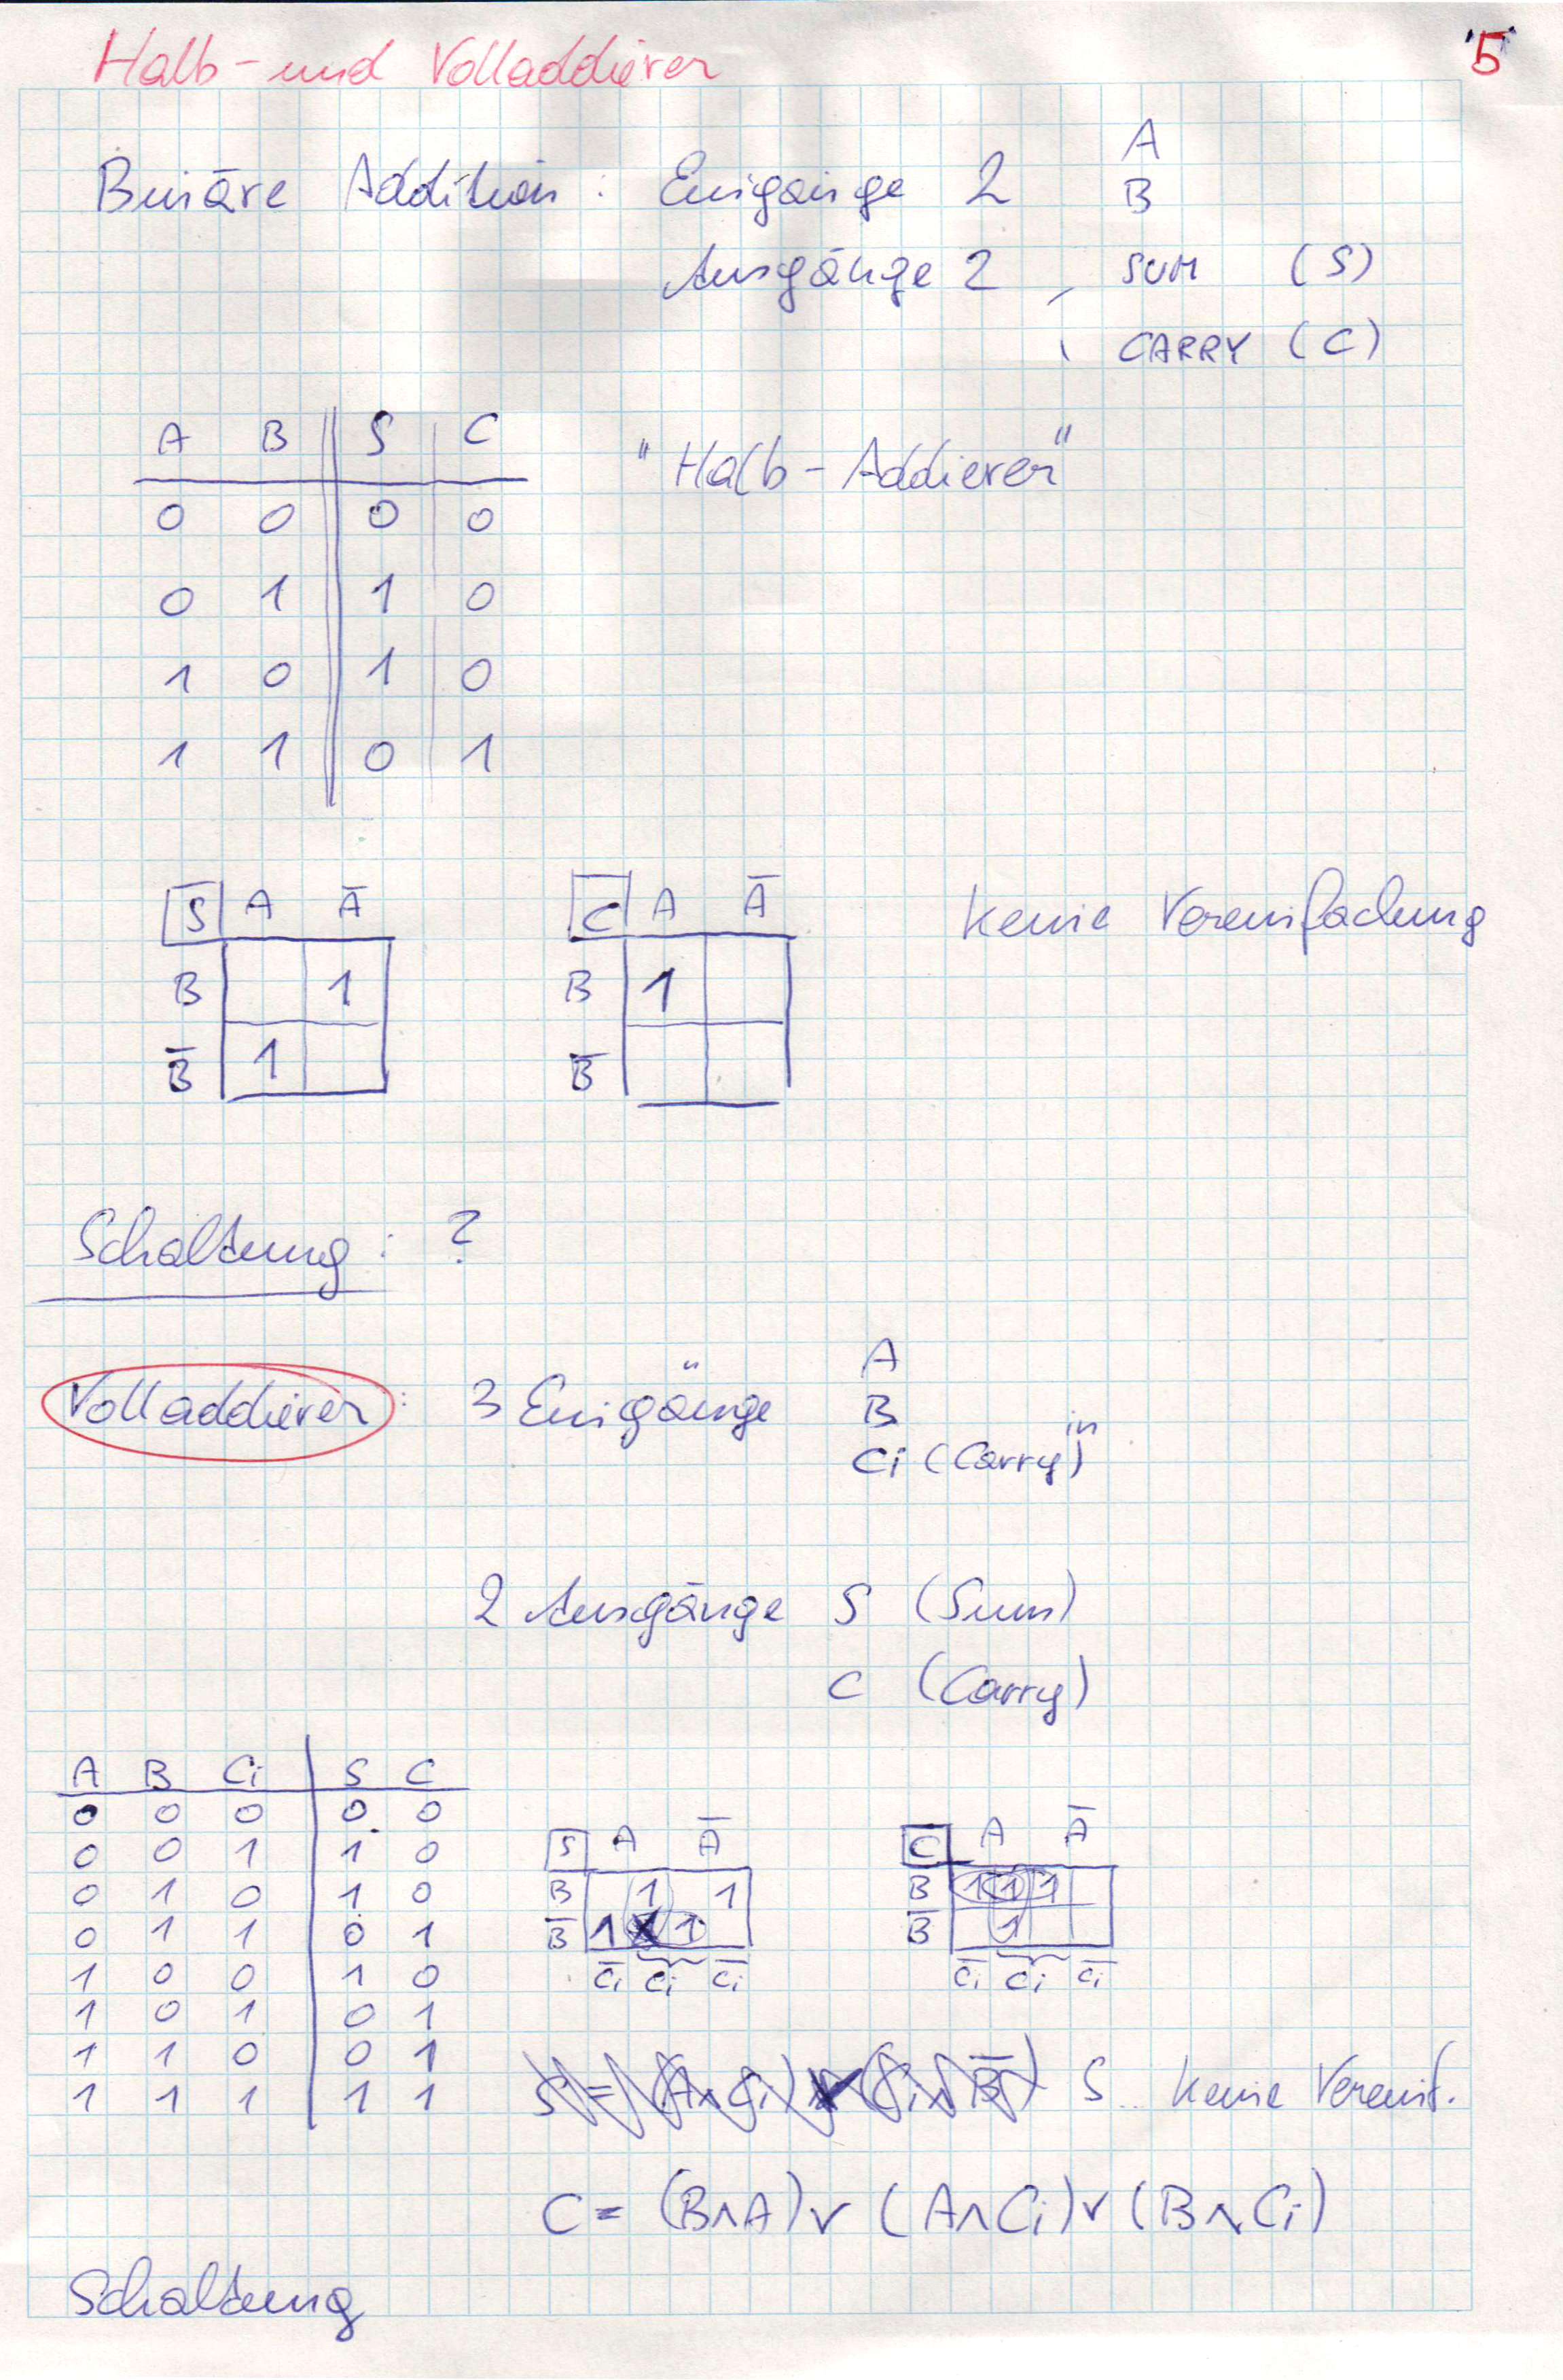 Halb- und Volladdierer 5
Binäre Addition : Eingänge 2 A
B
Ausgänge 2 SUM (S)
CARRY (C)
A B S C
"Halb-Addierer"
0 0 0 0
0 1 1 0
1 0 1 0
1 1 0 1
S A A̅ C A A̅ keine Vereinfachung
B 1 B 1
B̅ 1 B̅
Schaltung : ?
Volladdierer : 3 Eingänge A
B
Ci (Carry in)
2 Ausgänge S (Sum)
C (Carry)
A B Ci S C
0 0 0 0 0
0 0 1 1 0
0 1 0 1 0
0 1 1 0 1
1 0 0 1 0
1 0 1 0 1
1 1 0 0 1
1 1 1 1 1
S A A̅ C A A̅
B 1 1 B 1 1 1
B̅ 1 1 B̅ 1
C̅i Ci C̅i C̅i Ci C̅i
S = (A∧Ci) ∨ (Ci∧B̅) S .. keine Vereinf.
C = (B∧A) ∨ (A∧Ci) ∨ (B∧Ci)
Schaltung